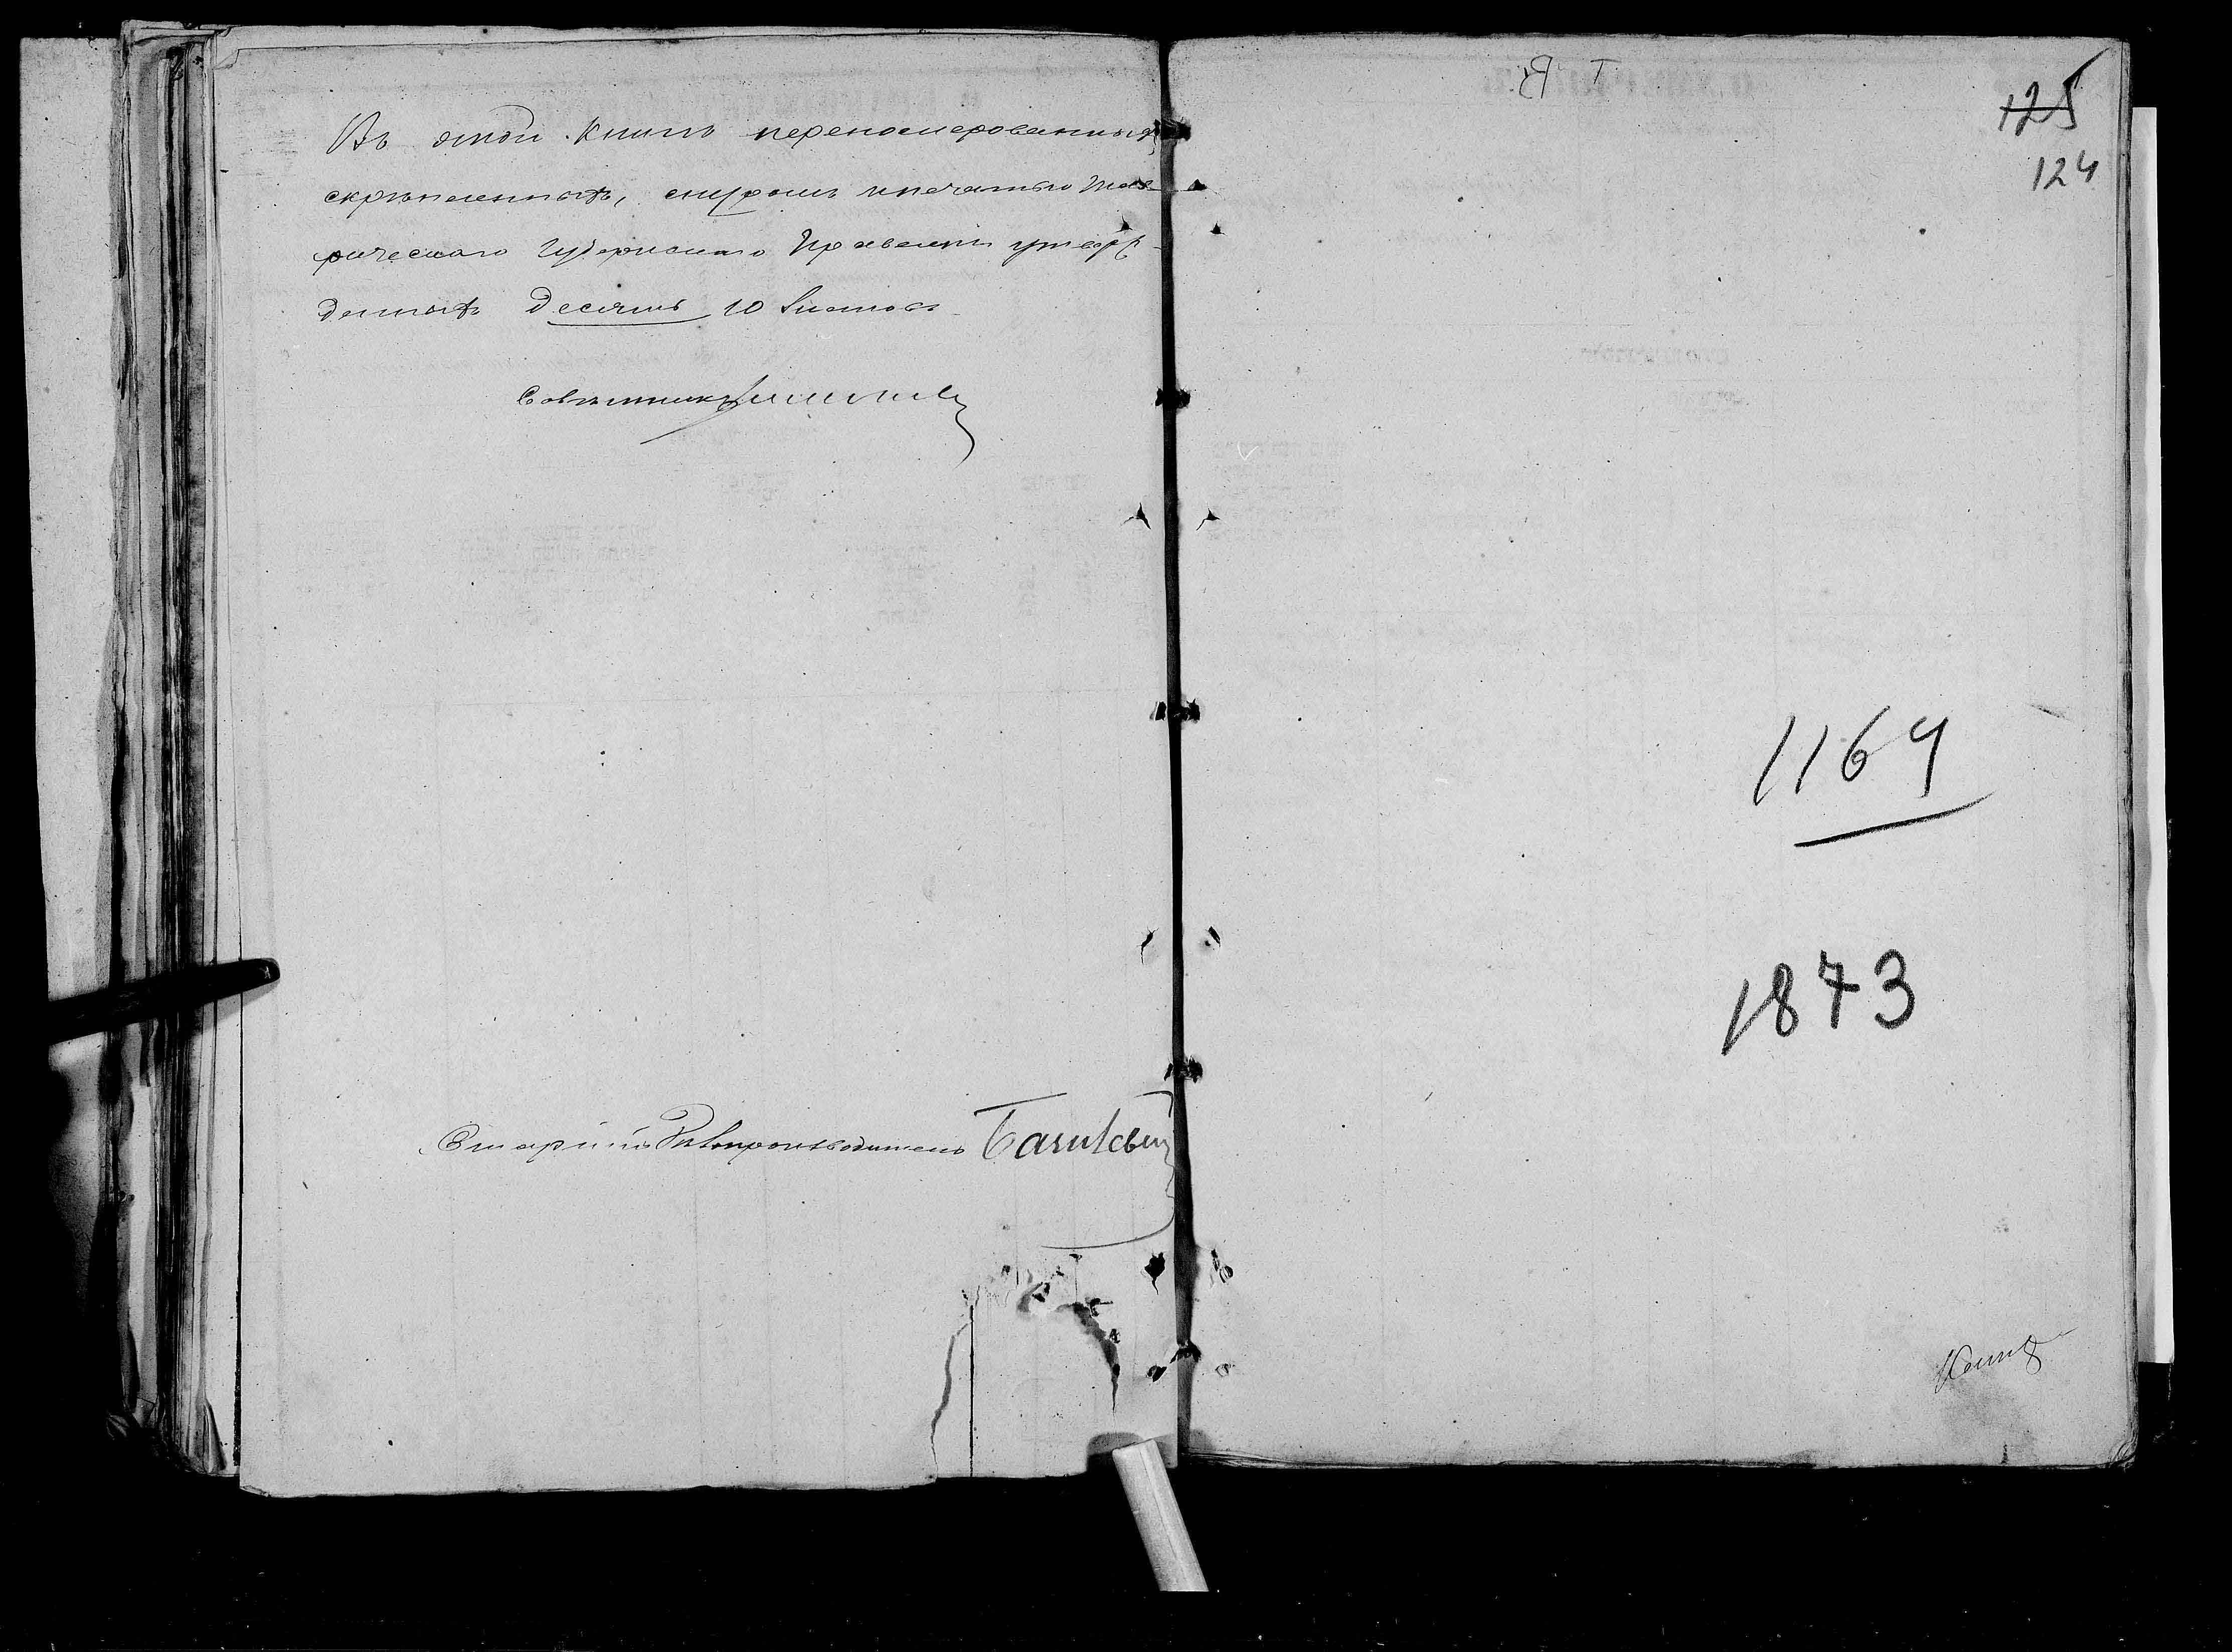 Въ этой книгѣ перенομерованныхъ
скрѣпленныхъ, шнуромъ и печатью Тав-
рическаго Губернскаго Правленія утверж-
денныхъ Десять 10 листовъ
Совѣтникъ
Старшій Дѣлопроизводитель
125
124
1164
1873